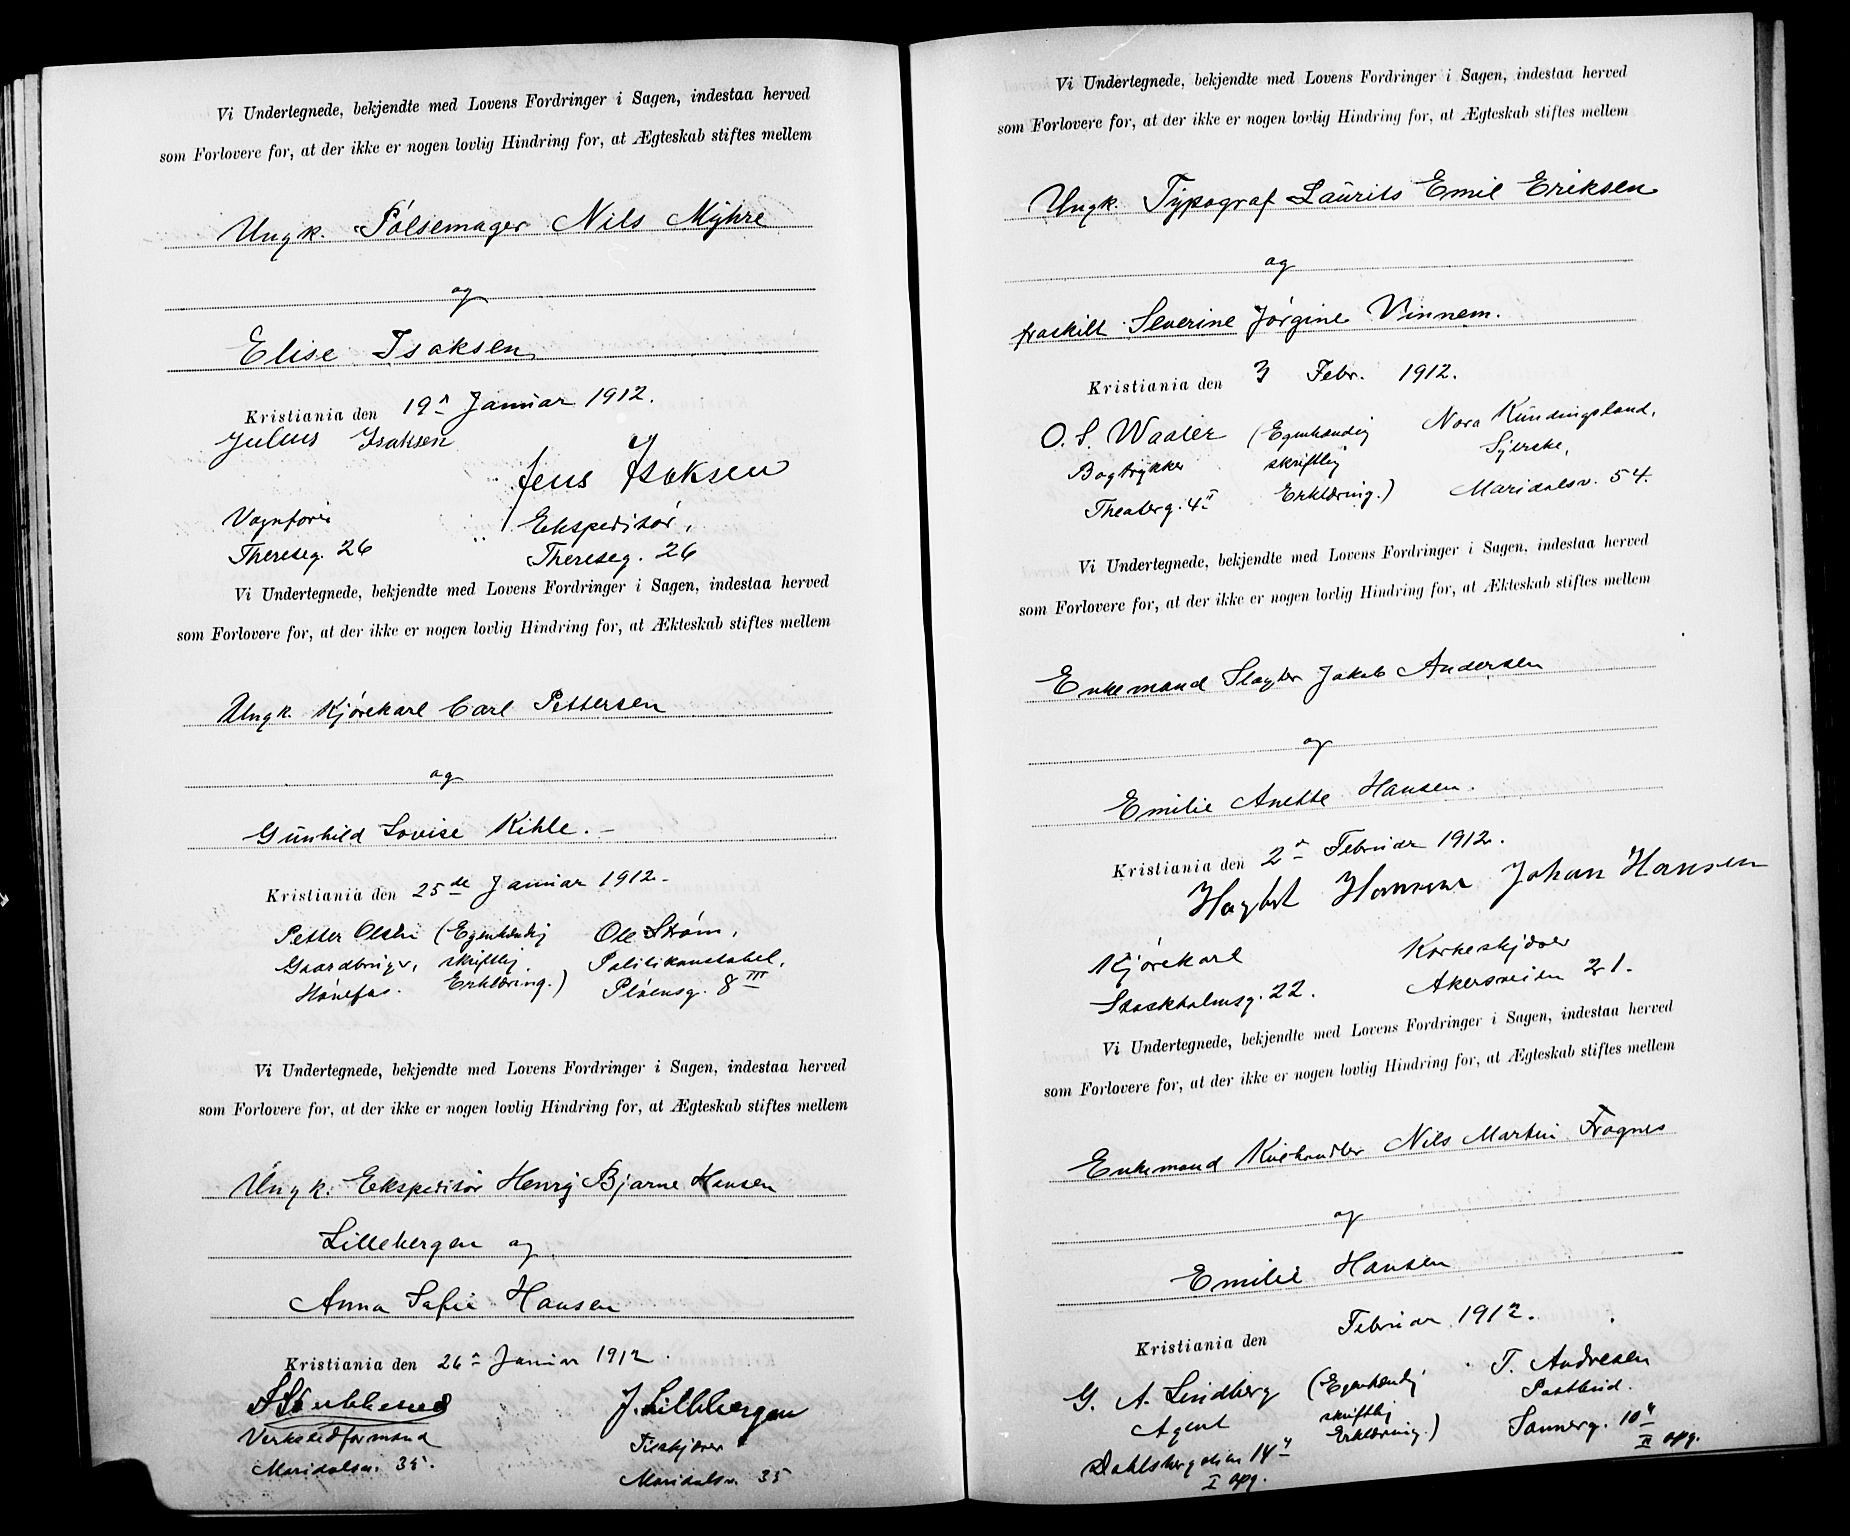 Vi Undertegnede, bekjendte med Lovens Fordringer i Sagen, indestaa herved
som Forlovere for, at der ikke er nogen lovlig Hindring for, at Ægteskab stiftes mellem
Ungk. Pølsemager Nils Myhre
og
Elise Isaksen
Kristiania den 19de Januar 1912.
Julius Isaksen
Jens Isaksen
Vognfører Ekspeditør,
Thereseg. 26 Thereseg. 26
Vi Undertegnede, bekjendte med Lovens Fordringer i Sagen, indestaa herved
som Forlovere for, at der ikke er nogen lovlig Hindring for, at Ækteskab stiftes mellem
Ungk. Kjørekarl Carl Pettersen
og
Gunhild Lovise Kihle.
Kristiania den 25de Januar 1912.
Petter Olsen (Egenhændig Ole Strøm,
Gaardbruger, skriftlig Politikonstabel,
Hønefos. Erklæring.) Pløensg. 8 III
Vi Undertegnede, bekjendte med Lovens Fordringer i Sagen, indestaa herved
som Forlovere for, at der ikke er nogen lovlig Hindring for, at Ægteskab stiftes mellem
Ungk. Ekspeditør Henry Bjarne Hansen
Lillebergen og
Anna Sofie Hansen
Kristiania den 26de Januar 1912.
J. Lillebergen
Verkstedformand
Maridalsv. 35.
Maridalsv. 35
Vi Undertegnede, bekjendte med Lovens Fordringer i Sagen, indestaa herved
som Forlovere for, at der ikke er nogen lovlig Hindring for, at Ægteskab stiftes mellem
Ungk. Typograf Laurits Emil Eriksen
og
fraskilt Severine Jørgine Vinnem.
Kristiania den 3 Febr. 1912.
O. S. Waaler (Egenhændig Nora Kundingsland,
Bogtrykker skriftlig Syerske,
Theaterg. 4 II Erklæring.) Maridalsv. 54.
Vi Undertegnede, bekjendte med Lovens Fordringer i Sagen, indestaa herved
som Forlovere for, at der ikke er nogen lovlig Hindring for, at Ækteskab stiftes mellem
Enkemand Slagter Jakob Andersen
og
Emilie Anette Hansen.
Kristiania den 2de Februar 1912.
Hagbt Hansen Johan Hansen
Kjørekarl Korkeskjærer
Stockholmsg. 22. Akersveien 21.
Vi Undertegnede, bekjendte med Lovens Fordringer i Sagen, indestaa herved
som Forlovere for, at der ikke er nogen lovlig Hindring for, at Ægteskab stiftes mellem
Enkemand Kulhandler Nils Martin Fragnes
og
Emilie Hansen
Kristiania den Februar 1912.
G. A. Lindberg (Egenhændig T. Andresen
Agent skriftlig Postbud.
Dahlsbergstien 14 Erklæring.) Sannerg. 10
I opg. II opg.